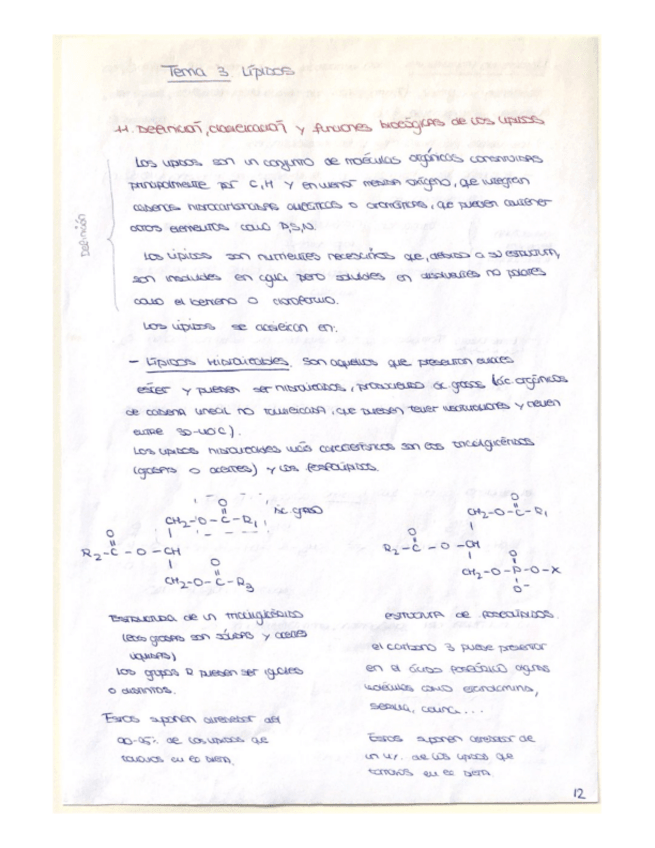 Tema 3 Lípidos
1. Definición, clasificación y funciones biológicas de los lípidos
Definición
Los lípidos son un conjunto de moléculas orgánicas constituidas
principalmente por C, H y en menor medida oxígeno, que integran
cadenas hidrocarbonadas alifáticas o aromáticas, que pueden contener
otros elementos como P, S, N.
Los lípidos son nutrientes necesarios que, debido a su estructura,
son insolubles en agua pero solubles en disolventes no polares
como el benceno o cloroformo.
Los lípidos se clasifican en:
- Lípidos Hidrolizables. Son aquellos que presentan enlaces
éster y pueden ser hidrolizados, produciendo ác. grasos (ác. orgánicos
de cadena lineal no ramificada, que pueden tener insaturaciones y tienen
entre C).
Los lípidos hidrolizables más característicos son los triglicéridos
(grasas o aceites) y los fosfolípidos.
CH2-O-C-R1 ác. graso
O
R2-C-O-CH
O
CH2-O-C-R3
O
CH2-O-C-R1
O
R2-C-O-CH
O
CH2-O-P-O-X
O
O-
Estructura de un triglicérido
(las grasas son sólidas y aceites
líquidos)
Los grupos R pueden ser iguales
o distintos.
Estos suponen alrededor del
90-95% de los lípidos que
tomamos en la dieta.
Estructura de fosfolípidos.
el carbono 3 puede presentar
en el ácido fosfórico algunas
moléculas como etanolamina,
serina, colina...
Estos suponen alrededor de
un 4% de los lípidos que
tomamos en la dieta
12